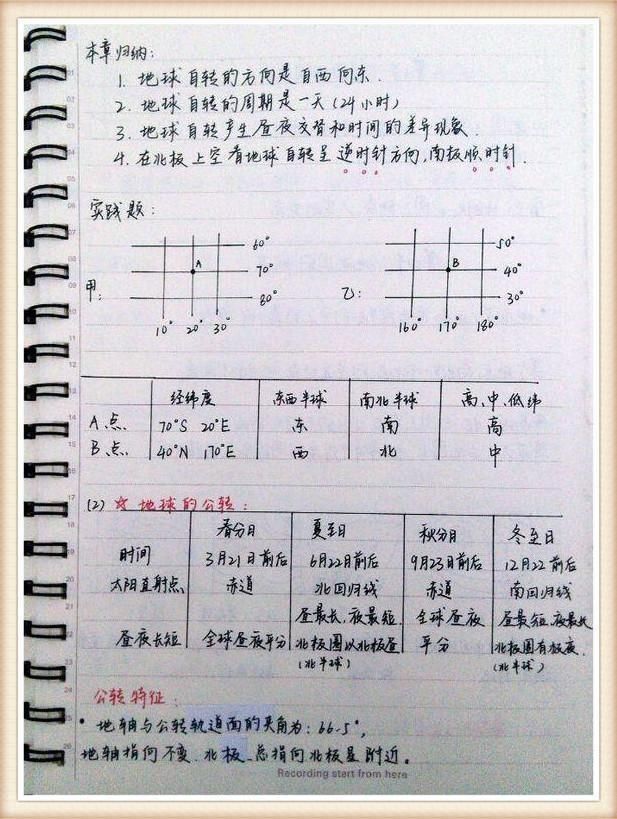 本章归纳:
1. 地球自转的方向是自西向东.
2. 地球自转的周期是一天(24小时)
3. 地球自转产生昼夜交替和时间的差异现象.
4. 在北极上空看地球自转呈逆时针方向,南极顺时针.
实践题:
甲: A 60° 70° 80° 10° 20° 30°
乙: B 50° 40° 30° 160° 170° 180°
经纬度 东西半球 南北半球 高、中、低纬
A点 70°S 20°E 东 南 高
B点 40°N 170°E 西 北 中
(2) ☆ 地球的公转:
春分日 夏至日 秋分日 冬至日
时间 3月21日前后 6月22日前后 9月23日前后 12月22前后
太阳直射点 赤道 北回归线 赤道 南回归线
昼最长,夜最短 全球昼夜 昼最短,夜最长
昼夜长短 全球昼夜平分 北极圈以北极昼 平分 北极圈有极夜.
(北半球) (北半球)
公转特征:
• 地轴与公转轨道面的夹角为: 66.5°,
地轴指向不变.北极总指向北极星附近。
Recording start from here